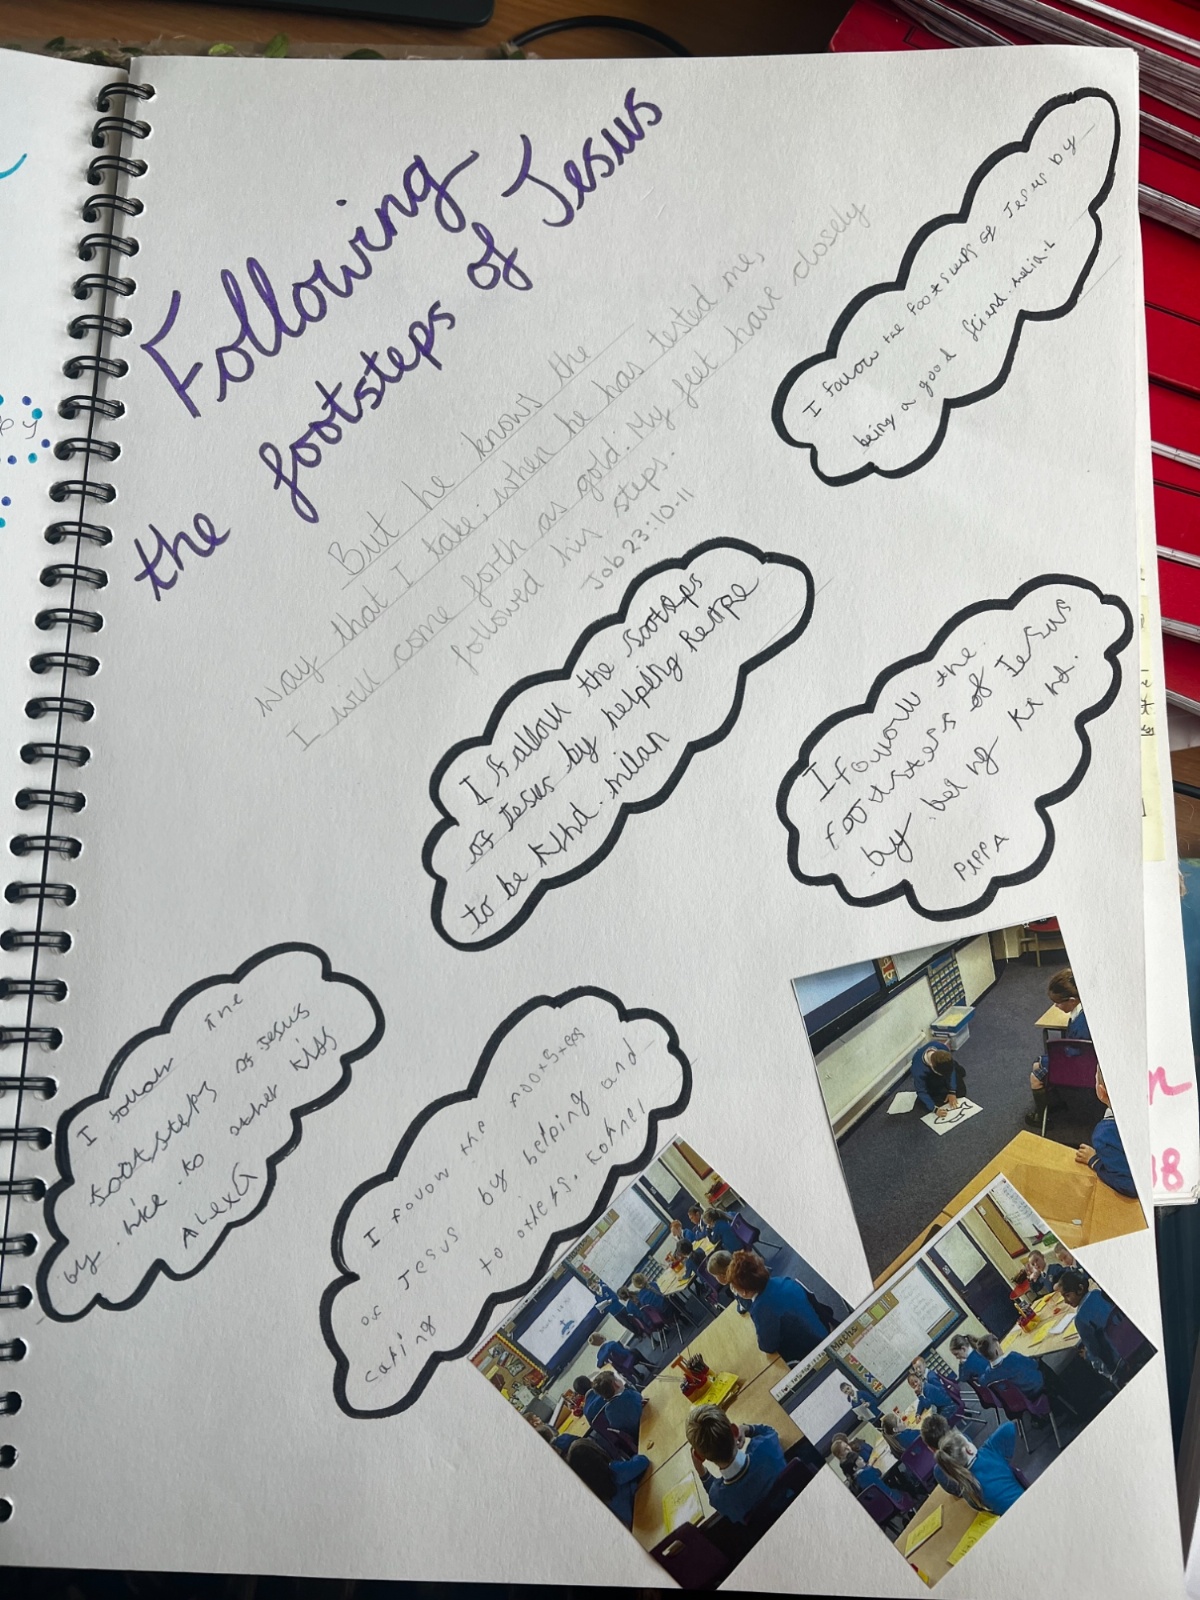 Following
the footsteps of Jesus
But he knows the
way that I take; when he has tested me,
I will come forth as gold. My feet have closely
followed his steps.
Job 23:10-11
I follow the footsteps of Jesus by
being a good friend.
I follow the footsteps
of Jesus by helping
to be kind. milan
I fowoll the
of Jesus
by being
PIPPA
I follow the
footsteps of Jesus
by to other
Alex G
I follow the
of Jesus by helping and
caring to others.